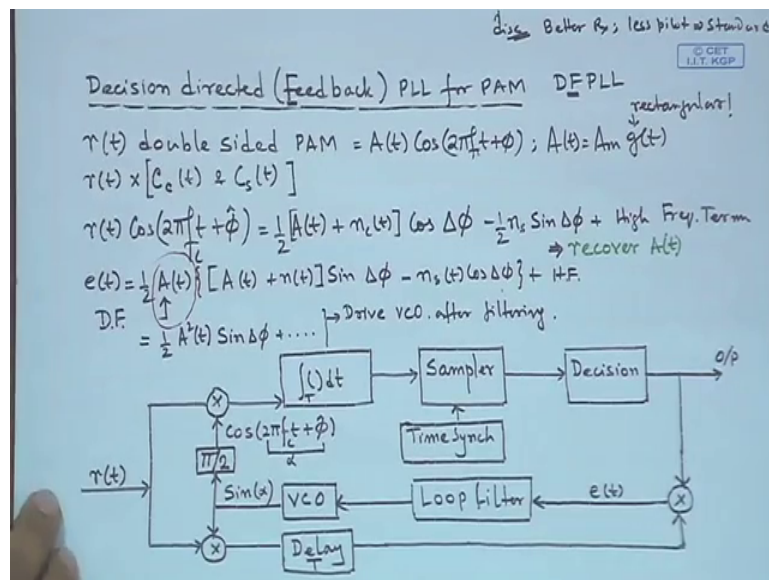 disc Better Rx; less pilot ⇒ Standard
© CET
I.I.T. KGP
Decision directed (Feedback) PLL for PAM DFPLL
rectangular!
r(t) double sided PAM = A(t) Cos(2πf_c t + φ) ; A(t) = Am g(t)
r(t) × [C_c(t) & C_s(t)]
r(t) Cos(2πf_c t + φ̂) = 1/2 [A(t) + n_c(t)] Cos Δφ - 1/2 n_s Sin Δφ + High Freq. Term
⇒ recover A(t)
e(t) = 1/2 A(t) { [A(t) + n(t)] Sin Δφ - n_s(t) Cos Δφ } + H.F.
D.F.
→ Drive VCO. after filtering.
= 1/2 A²(t) Sin Δφ + ....
∫_T ( ) dt
Sampler
Decision
O/P
×
Cos(2πf_c t + φ̂)
α
Time Synch
π/2
r(t)
Sin(α)
VCO
Loop filter
e(t)
×
×
Delay
T